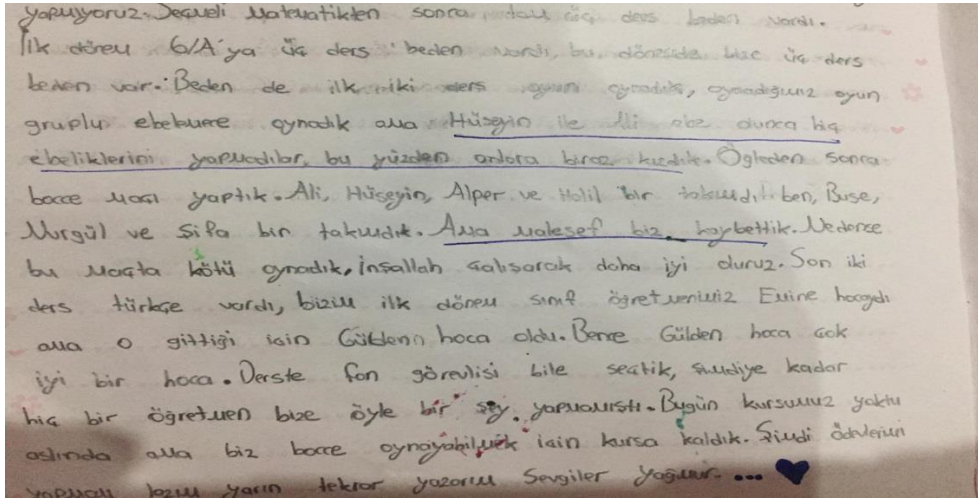 yapmıyoruz. Seçmeli Matematikten sonra üç ders beden vardı.
İlk dönem 6/A'ya üç ders beden vardı, bu dönemde bize üç ders
beden var. Beden de ilk iki ders oyun oynadık, oynadığımız oyun
gruplu ebelemere oynadık ama Hüseyin ile Ali ebe olunca hiç
ebeliklerini yapmadılar, bu yüzden onlara biraz kızdık. Öğleden sonra
bocce maçı yaptık. Ali, Hüseyin, Alper ve Halil bir takımdı ben, Buse,
Nurgül ve Şifa bin takımdık. Ama malesef biz kaybettik. Nedense
bu maçta kötü oynadık, inşallah çalışarak daha iyi oluruz. Son iki
ders türkçe vardı, bizim ilk dönem sınıf öğretmenimiz Emine hocaydı
ama o gittiği için Güldenn hoca oldu. Bence Gülden hoca çok
iyi bir hoca. Derste fon görevlisi bile seçtik, şimdiye kadar
hiç bir öğretmen bize öyle bir şey yapmamıştı. Bugün kursumuz yoktu
aslında ama biz bocce oynayabilmek için kursa kaldık. Şimdi ödevlerimi
yapmam lazım yarın tekrar yazarım Sevgiler Yağmur...